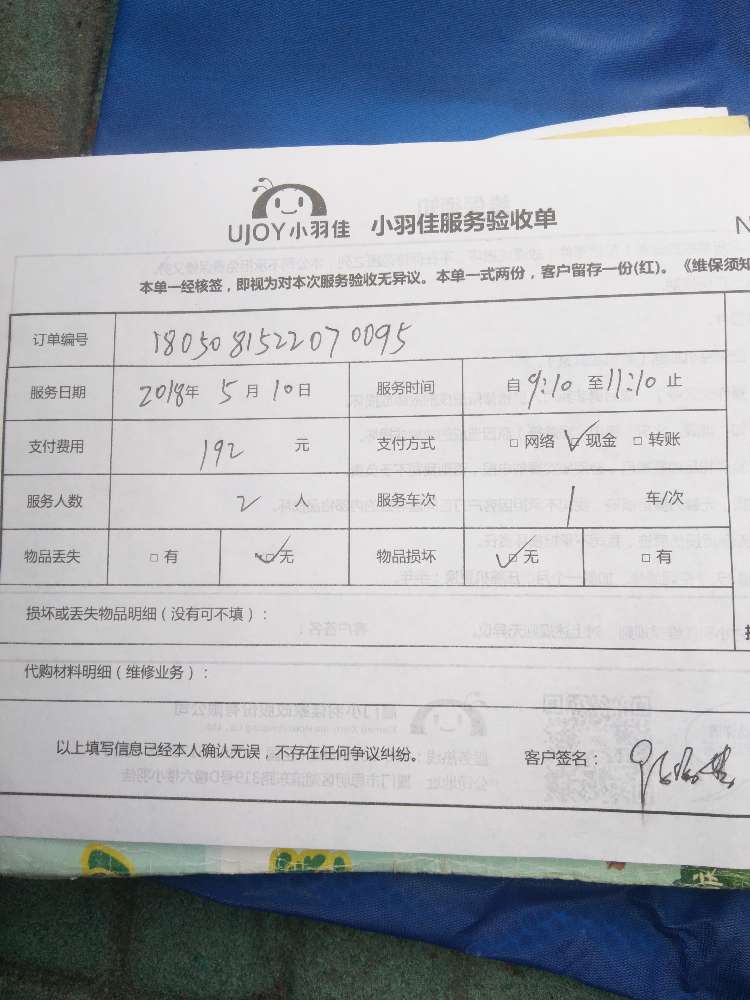 UJOY小羽佳 小羽佳服务验收单 N
本单一经核签，即视为对本次服务验收无异议。本单一式两份，客户留存一份(红)。《维保须知
订单编号 180508152207 0095
服务日期 2018年 5月 10日 服务时间 自 9:10 至 11:10 止
支付费用 192 元 支付方式 □网络 ☑现金 □转账
服务人数 2 人 服务车次 1 车/次
物品丢失 □有 ☑无 物品损坏 ☑无 □有
损坏或丢失物品明细（没有可不填）：
代购材料明细（维修业务）：
以上填写信息已经本人确认无误，不存在任何争议纠纷。 客户签名：